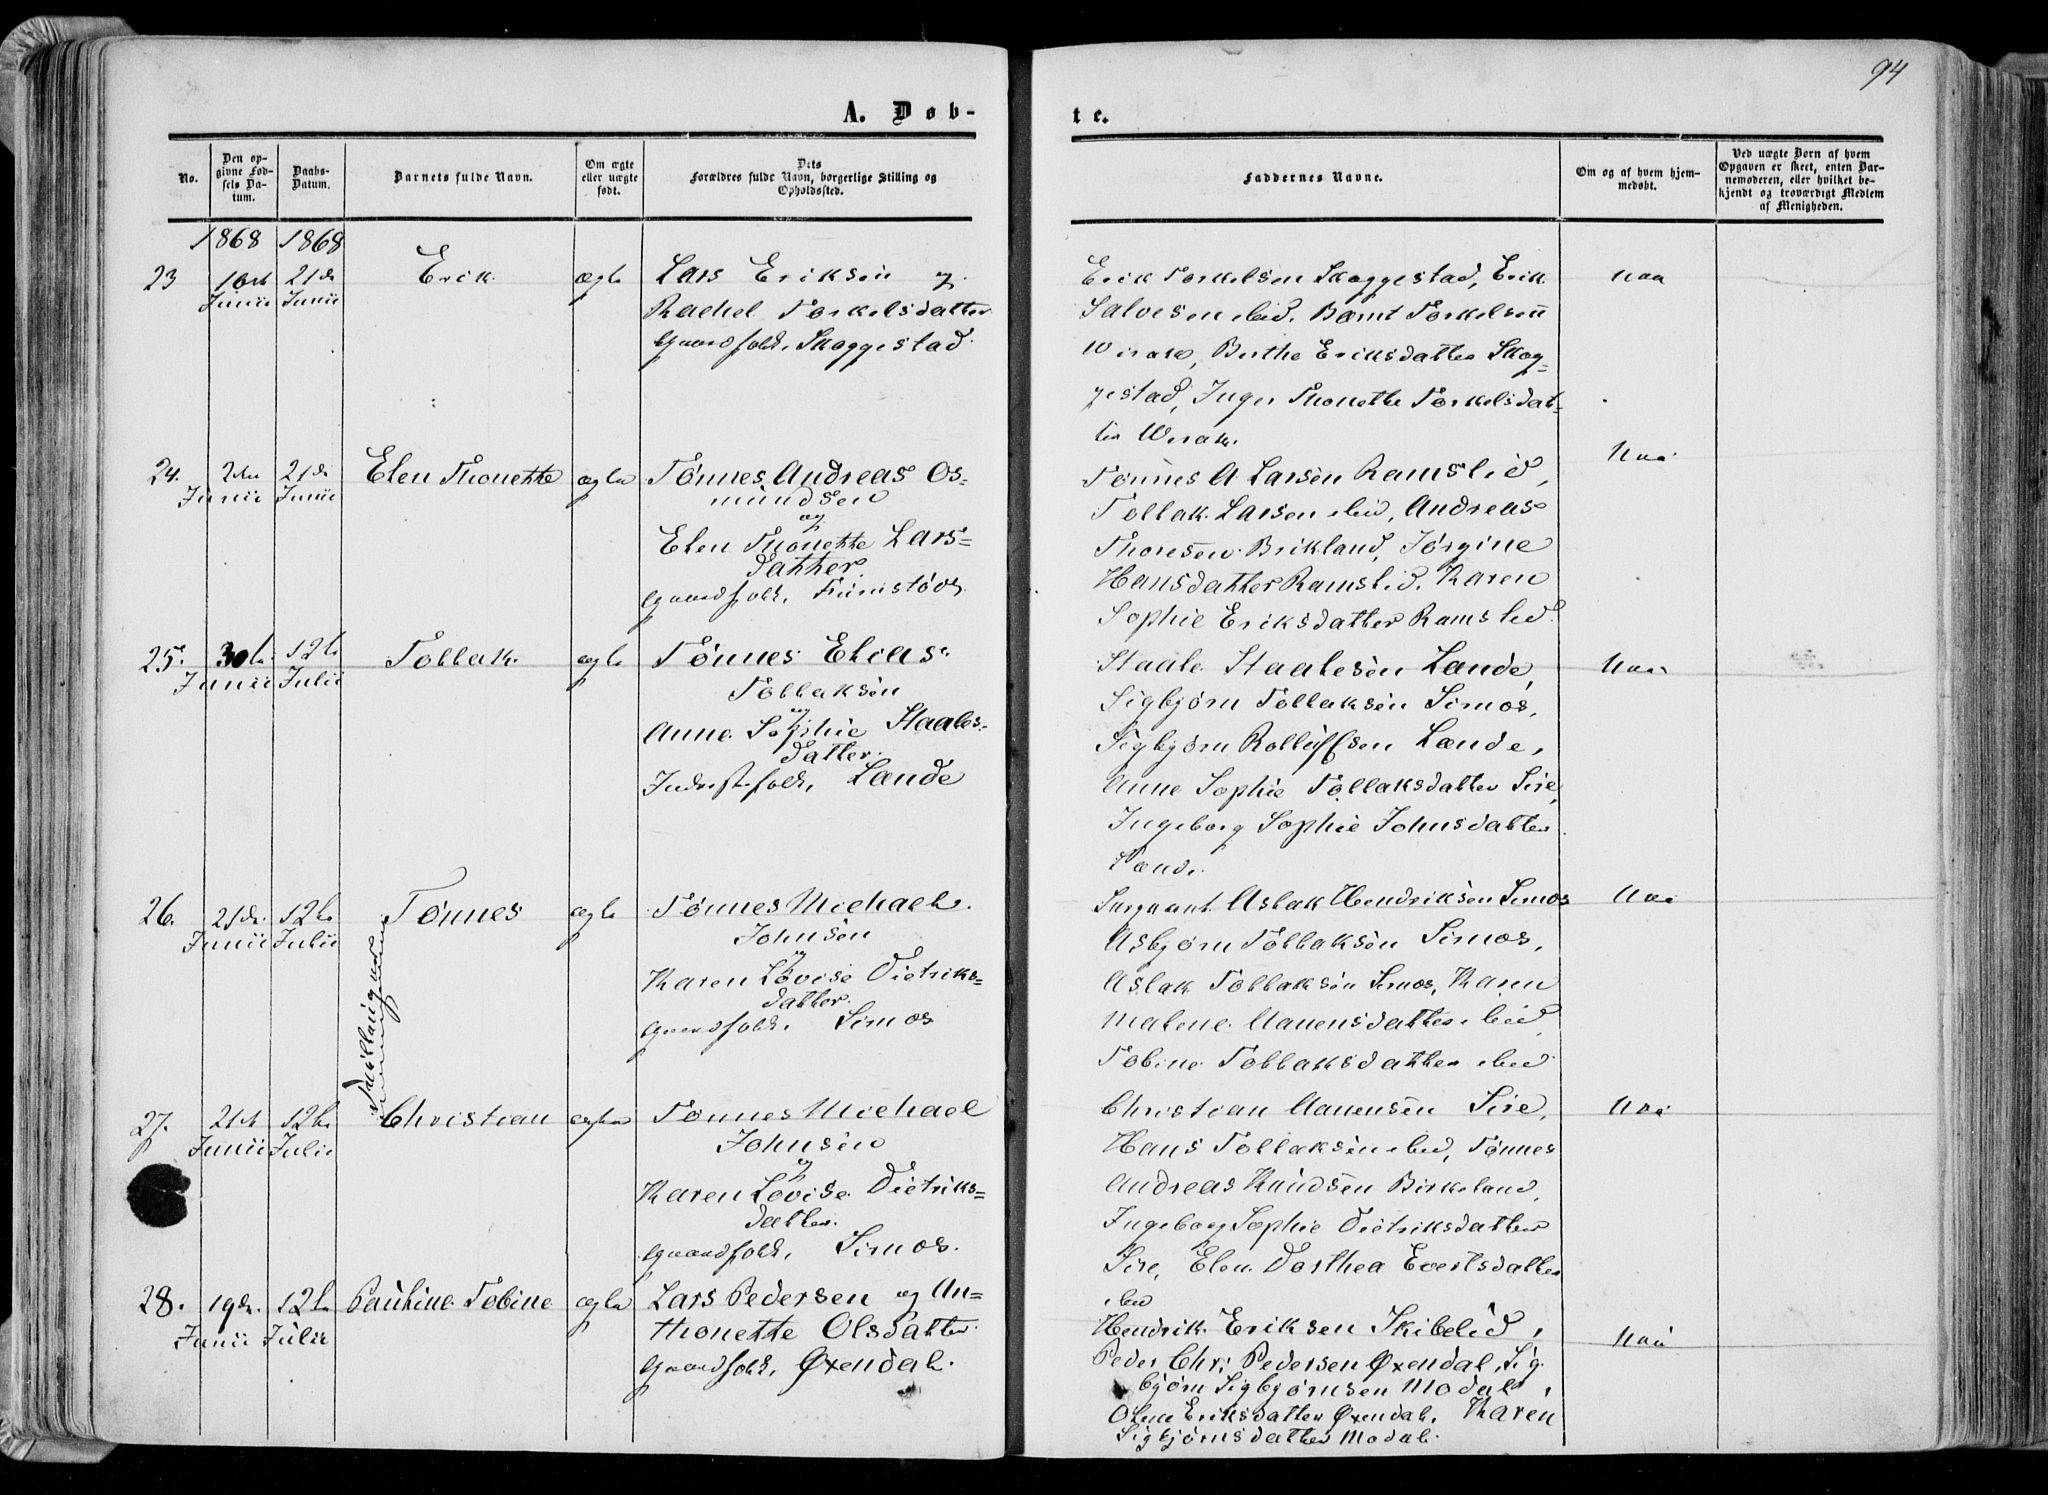 94
A. Døb-
te.
No.
Den op-
givne Fød-
sels Da-
tum.
Daabs-
Datum.
Barnets fulde Navn.
Om ægte
eller uægte
født.
Dets
Forældres fulde Navn, borgerlige Stilling og
Opholdssted.
Faddernes Navne.
Om og af hvem hjem-
medøbt.
Ved uægte Børn af hvem
Opgaven er skeet, enten Bar-
nemoderen, eller hvilket be-
kjendt og troværdigt Medlem
af Menigheden.
1868 1868
23
Junii
21de
Junii
Erik
ægte
Lars Eriksen og
Rachel Torkelsdatter
Gaardfolk, Skoggestad.
Erik Torkelsen Skoggestad, Erik
Salvesen ibid. Bernt Torkelsen
Werak, Berthe Eriksdatter Skog=
gestad, Inger Thonette Torkelsdat=
ter Werak.
Nei
24.
2den
Junii
21de
Junii
Elen Thonette
ægte
Tønnes Andreas Os=
mundsen
og
Elen Thonette Lars=
datter
Gaardfolk,
Tønnes A Larsen Ramslid,
Tollak Larsen ibid, Andreas
Thoresen Birkland, Jørgine
Hansdatter Ramslid, Karen
Sophie Eriksdatter Ramslid.
Nei
25.
30te
Junii
12te
Julii
Tollak.
ægte
Tønnes Elias
Tollaksen
og
Anne Sophie Staales=
datter.
Inderstfolk, Lande
Staale Staalesen Lande,
Sigbjørn Tollaksen Sirnos,
Sigbjørn Rolluffsen Lande,
Anne Sophie Tollaksdatter Sire,
Ingeborg Sophie Johnsdatter
Lande.
Nei
26.
21de
Junii
12te
Julii
Tønnes
Tvillinger
ægte
Tønnes Michael
Johnsen
og
Karen Lovise Dietriks=
datter.
Gaardfolk. Sirnos
Sergeant Aslak Hendriksen Sirnos
Asbjørn Tollaksen Sirnos,
Aslak Tollaksen Sirnos, Karen
Malene Aanensdatter ibid,
Tobine Tollaksdatter ibid
Nei
27.
21de
Junii
12te
Julii
Christian
ægte
Tønnes Michael
Johnsen
og
Karen Lovise Dietriks=
datter.
Gaardfolk, Sirnos.
Christian Aanensen Sire,
Hans Tollaksen ibid, Tønnes
Andreas Knudsen Birkeland,
Ingeborg Sophie Dietriksdatter
Sire, Elen Dorthea Evertsdatter
ibid
Nei
28.
19de
Junii
12te
Julii
Pauline Tobine
ægte
Lars Pedersen og An=
thonette Olsdatter
Gaardfolk, Øxendal.
Hendrik Eriksen Skibelid,
Peder Chr: Pedersen Øxendal, Sig
bjørn Sigbjørnsen Modal,
Olene Eriksdatter Øxendal, Karen
Sigbjørnsdatter Modal.
Nei